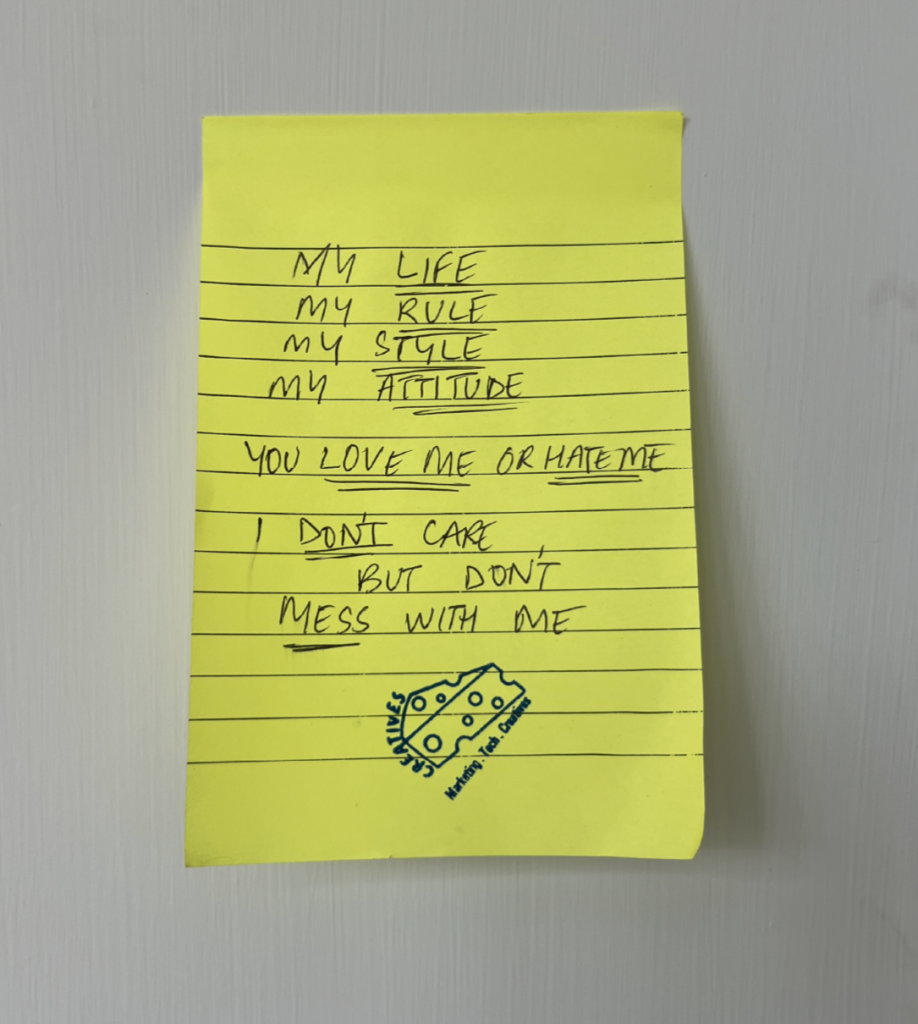 MY LIFE
MY RULE
MY STYLE
MY ATTITUDE
YOU LOVE ME OR HATE ME
I DON'T CARE
BUT DON'T
MESS WITH ME
CREATIVES
Marketing. Tech. Creatives